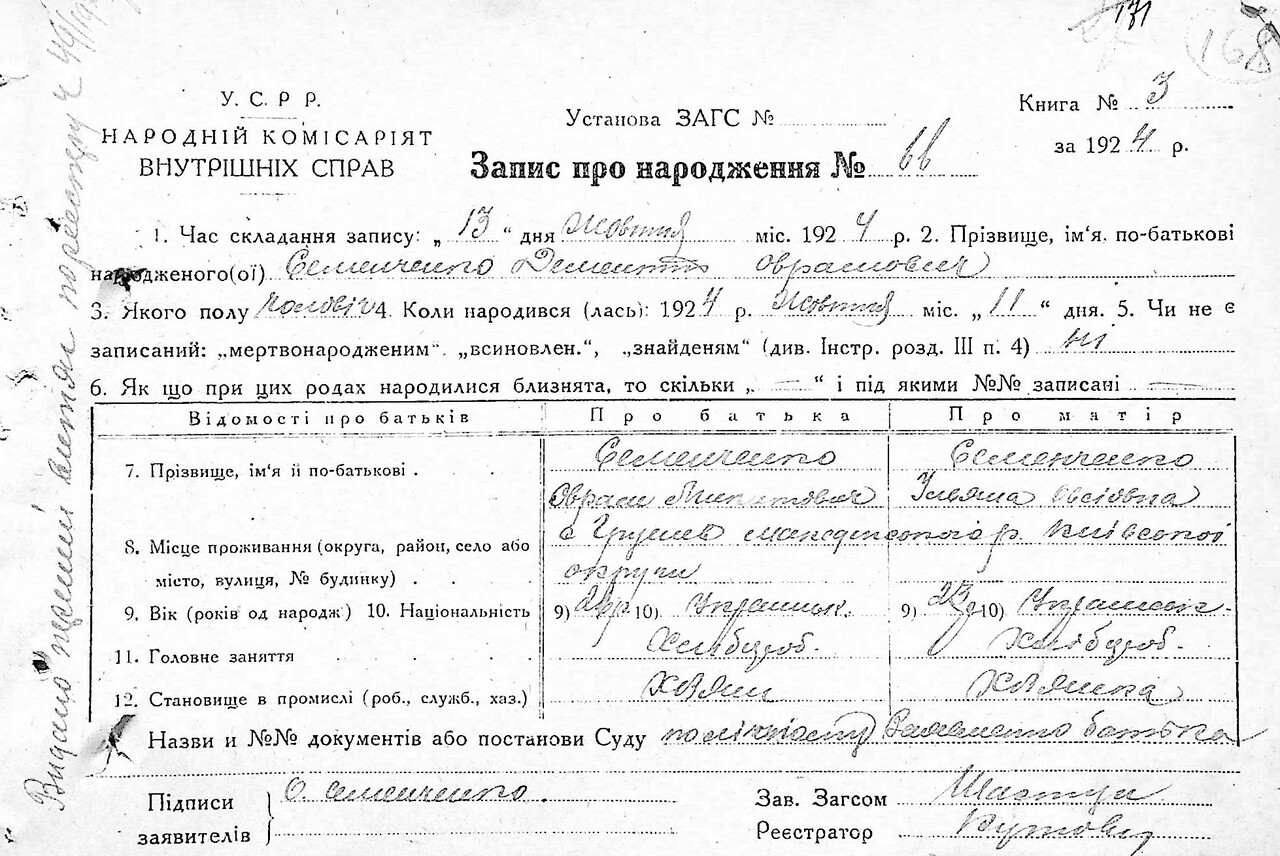 171
168
У. С. Р Р.
НАРОДНІЙ КОМІСАРІЯТ
ВНУТРІШНІХ СПРАВ
Установа ЗАГС №
Книга № 3
за 1924 р.
Запис про народження № 66
1. Час складання запису: „ 13 “ дня Жовтня міс. 1924 р. 2. Прізвище, ім'я, по-батькові
народженого(ої) Семенченко Дементій Оврамович
3. Якого полу чоловіч 4. Коли народився (лась): 1924 р. Жовтня міс. „ 11 “ дня. 5. Чи не є
записаний: „мертвонародженим“, „всиновлен.“, „знайденям“ (див. Інстр. розд. III п. 4) ні
6. Як що при цих родах народилися близнята, то скільки „ — “ і під якими №№ записані —
Відомості про батьків Про батька Про матір
7. Прізвище, ім'я й по-батькові . . . Семенченко Семенченко
Оврам Микитович Уляна Овсіовна
8. Місце проживання (округа, район, село або
місто, вулиця, № будинку) . . . с Грушев р. Київської
округи
9. Вік (років од народж) 10. Національність 9) 10) Українець. 9) 23 10) Українка.
11. Головне заняття . . . . Хлібороб. Хлібороб.
12. Становище в промислі (роб., служб., хаз.) Хозяин Хозяйка
Назви и №№ документів або постанови Суду батька
Підписи
заявителів О. Семенченко.
Зав. Загсом
Реєстратор
Видано